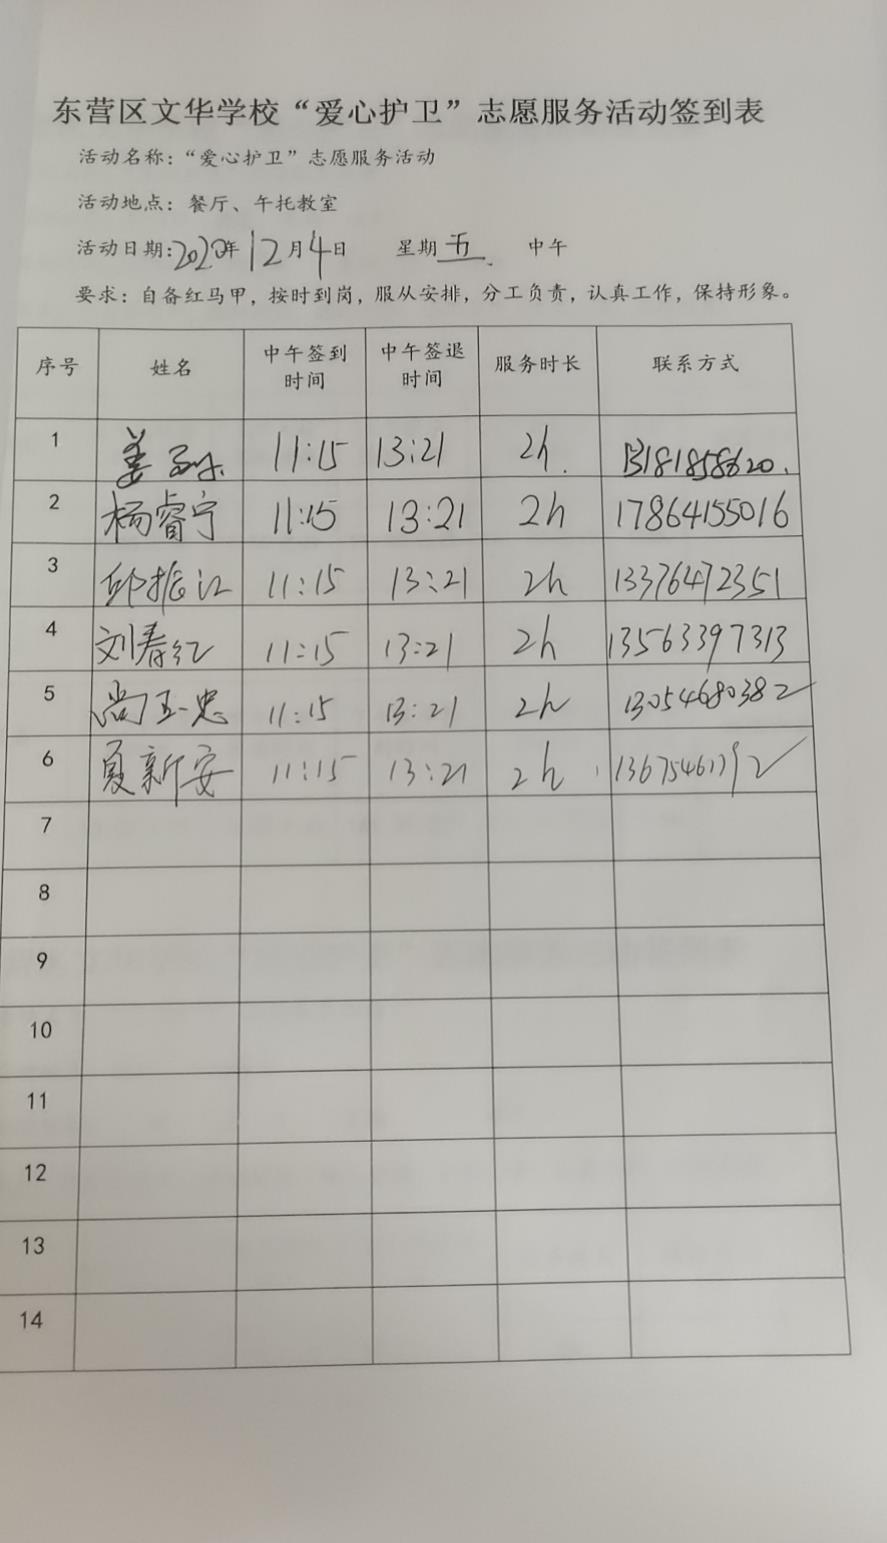 东营区文华学校“爱心护卫”志愿服务活动签到表
活动名称:“爱心护卫”志愿服务活动
活动地点: 餐厅、午托教室
活动日期:2020年12月4日 星期五 中午
要求: 自备红马甲, 按时到岗, 服从安排, 分工负责, 认真工作, 保持形象。
序号 姓名 中午签到时间 中午签退时间 服务时长 联系方式
1 姜 11:15 13:21 2h.
2 杨睿宁 11:15 13:21 2h 17864155016
3 邱振江 11:15 13:21 2h 13376472351
4 刘春红 11:15 13:21 2h 13563397313
5 尚玉忠 11:15 13:21 2h 13054680382
6 夏新安 11:15 13:21 2h
7
8
9
10
11
12
13
14